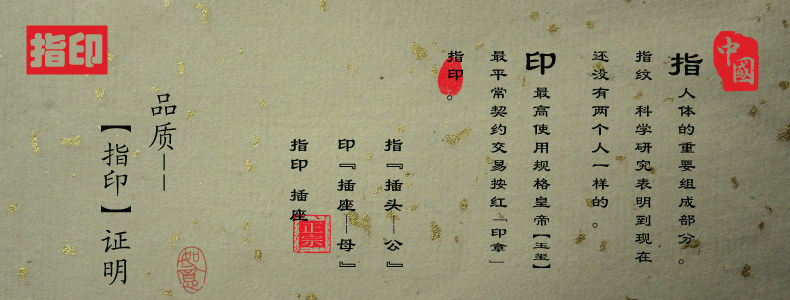 中國
指 人体的重要组成部分。
指纹 科学研究表明到现在
还没有两个人一样的。
印 最高使用规格皇帝【玉玺】
最平常契约交易按红「印章」
指印。
指『插头——公』
印『插座——母』
指印 插座
正宗
品质——
【指印】证明
如意
指印